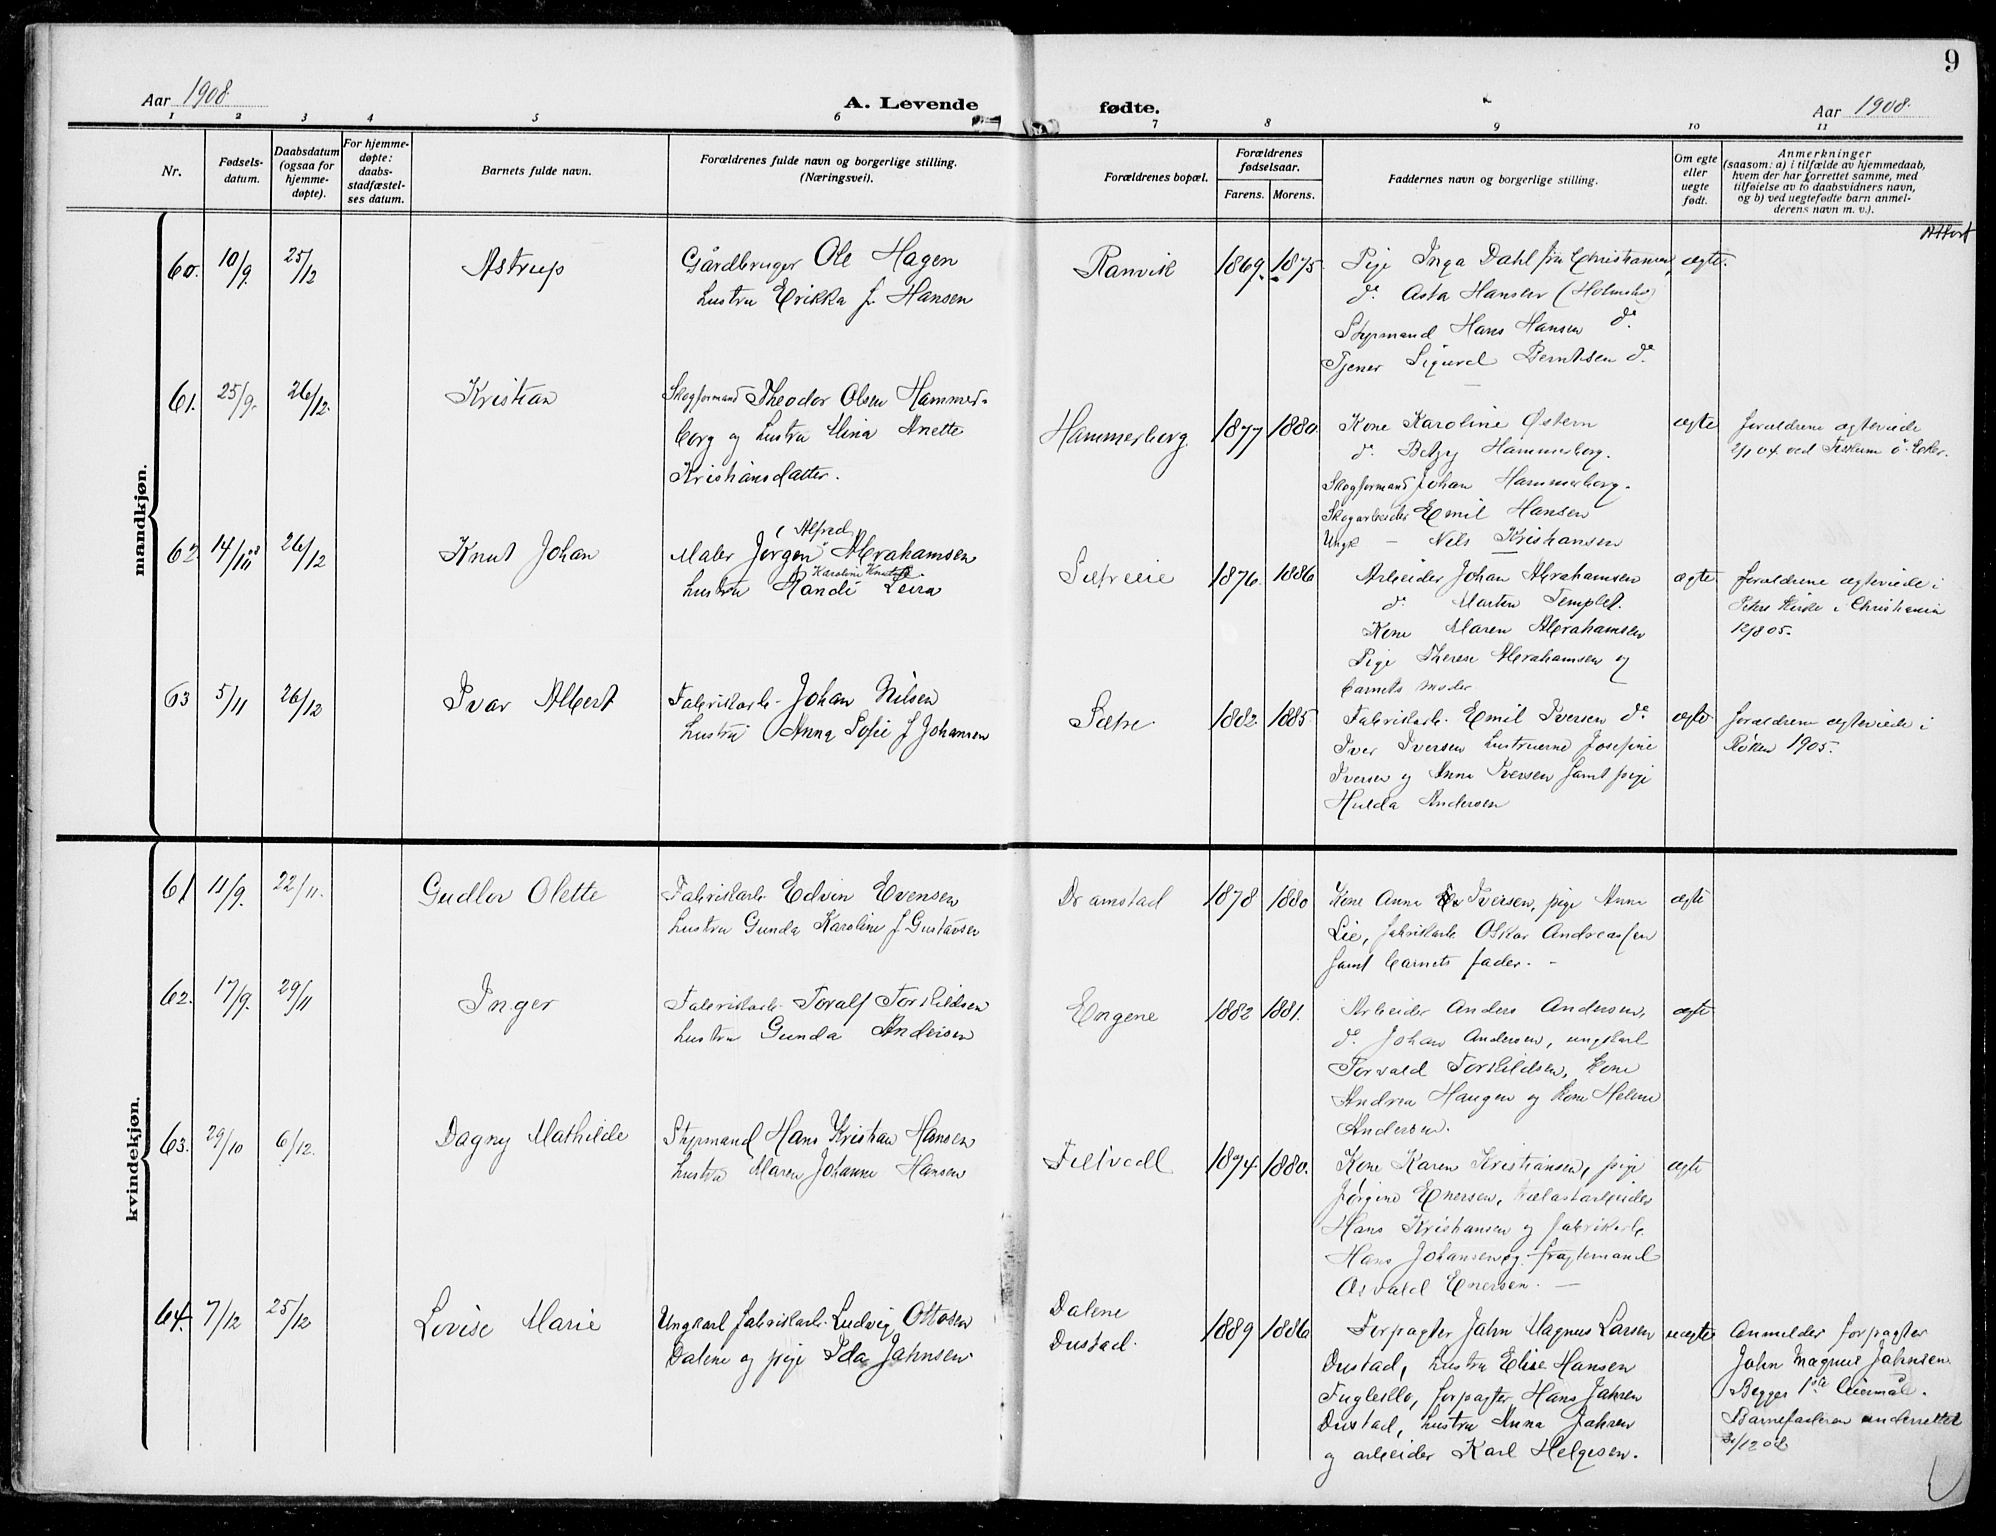 9
Aar 1908.
A. Levende
fødte.
Aar 1908.
1 2 3 4 5 6 7 8 9 10 11
Nr.
Fødsels-
datum.
Daabsdatum
(ogsaa for
hjemme-
døpte).
For hjemme-
døpte:
daabs-
stadfæstel-
ses datum.
Barnets fulde navn.
Forældrenes fulde navn og borgerlige stilling.
(Næringsvei).
Forældrenes bopæl.
Forældrenes
fødselsaar.
Farens. Morens.
Faddernes navn og borgerlige stilling.
Om egte
eller
uegte
født.
Anmerkninger
(saasom: a) i tilfælde av hjemmedaab,
hvem der har forrettet samme, med
tilføielse av to daabsvidners navn,
og b) ved uegtefødte barn anmel-
derens navn m. v.).
mandkjøn.
60. 10/9. 25/12 Astrup
Gårdbruger Ole Hagen
hustru Erikka f. Hansen
Ranvik 1869. 1875.
Pige Inga Dahl fra Christiania,
do. Asta Hansen (Holmsbo)
Styrmand Hans Hansen do.
Tjener Sigurd Berntsen do.
ægte.
61. 25/9. 26/12. Kristian
Skogformand Theodor Olsen Hammer-
borg og hustru Mina Anette
Kristiansdatter.
Hammerborg. 1877 1880.
Kone Karoline Østern
do. Betzy Hammerborg.
Skogformand Johan Hammerborg.
Skogarbeider Emil Hansen
Ungk — Nels Kristiansen
ægte
forældrene ægteviede
2/1 04. ved Fiskum ö. Eker.
62 14/10 08 26/12 Knut Johan
(Alfred
Maler Jørgen Abrahamsen
Karoline
hustru Randi Leira
Sætreeie 1876. 1886
Arbeider Johan Abrahamsen
do. Morten Templet.
Kone Maren Abrahamsen
Pige Therese Abrahamsen og
barnets moder.
ægte
forældrene ægteviede i
Petri Kirke i Christiania
12/8 05.
63 5/11 26/12 Ivar Albert
Fabrikarb. Johan Nilsen
hustru Anna Sofie f Johansen
Sætre 1882. 1885
Fabrikarb. Emil Iversen do.
Iver Iversen hustruerne Josefine
Iversen og Anna Iversen samt pige
Hulda Andersen
ægte
forældrene ægteviede i
Røken 1905.
kvindekjøn.
61 11/9. 22/11. Gudlov Olette
Fabrikarb. Edvin Evensen
hustru Gunda Karoline f Gustavsen
Dramstad 1878 1880
Kone Anna Iversen, pige Anna
Lie, fabrikarb Oskar Andreassen
samt barnets fader. -
ægte
62. 17/9. 29/11 Inger
Fabrikarb. Toralf Torkildsen
hustru Gunda Andersen
Engene 1882 1881.
Arbeider Anders Andersen,
do. Johan Andersen, ungkarl
Torvald Torkildsen, kone
Andrea Haugen og kone Helene
Andersen.
ægte
63. 29/10 6/12. Dagny Mathilde
Styrmand Hans Kristian Hansen
hustru Maren Johanne Hansen
Filtvedt 1874. 1880.
Kone Karen Kristiansen, pige
Jørgine Enersen,
Hans Kristiansen og fabrikarb.
Hans Johansen og fragtemand
Osvald Enersen. —
ægte
64. 7/12 25/12 Lovise Marie
Ungkarl fabrikarb. Ludvig Ottosen
Dalene og pige Ida Jahnsen
Dalene
Dustad. 1889 1886
Forpagter Jahn Magnus Larsen
Dustad, hustru Elise Hansen
Fugleslo, forpagter Hans Jahren
Dustad, hustru Anna Jahren
og arbeider Karl Helgesen.
uægte
Anmelder forpagter
John Magnus Jahnsen.
Begges 1ste leiermål.
Barnefaderen underrettet
31/12 08